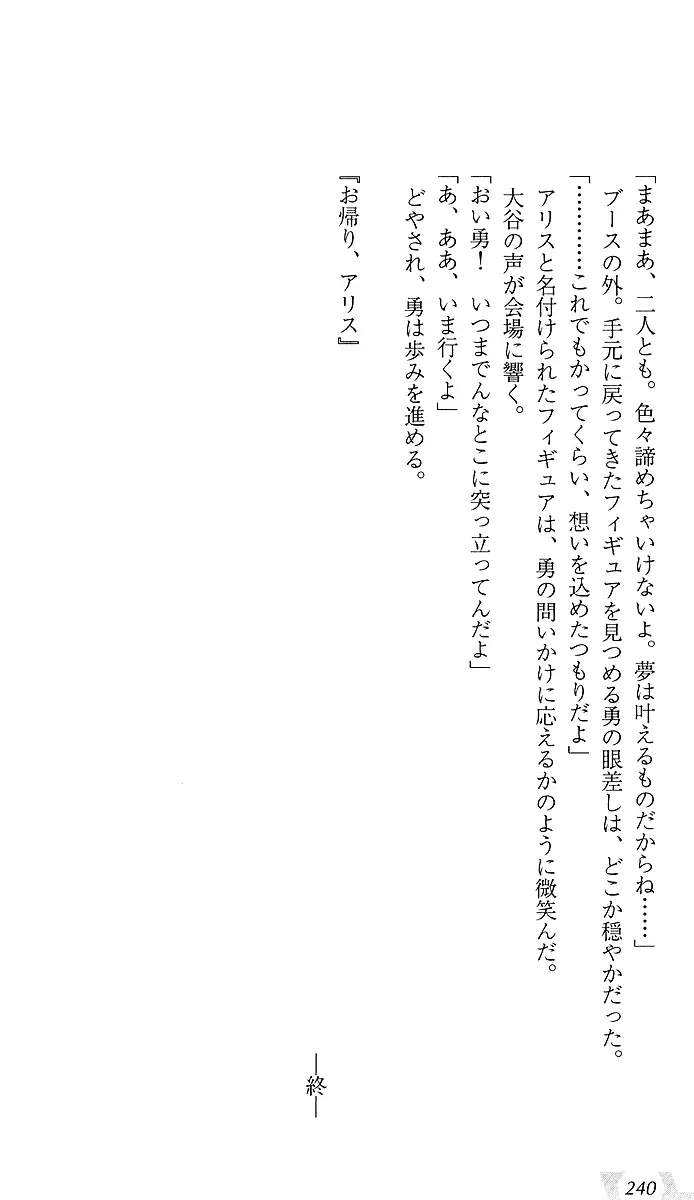 「まあまあ、二人とも。色々諦めちゃいけないよ。夢は叶えるものだからね……」
ブースの外。手元に戻ってきたフィギュアを見つめる勇の眼差しは、どこか穏やかだった。
「…………これでもかってくらい、想いを込めたつもりだよ」
アリスと名付けられたフィギュアは、勇の問いかけに応えるかのように微笑んだ。
大谷の声が会場に響く。
「おい勇！　いつまでんなとこに突っ立ってんだよ」
「あ、ああ、いま行くよ」
どやされ、勇は歩みを進める。
『お帰り、アリス』
―終―
240